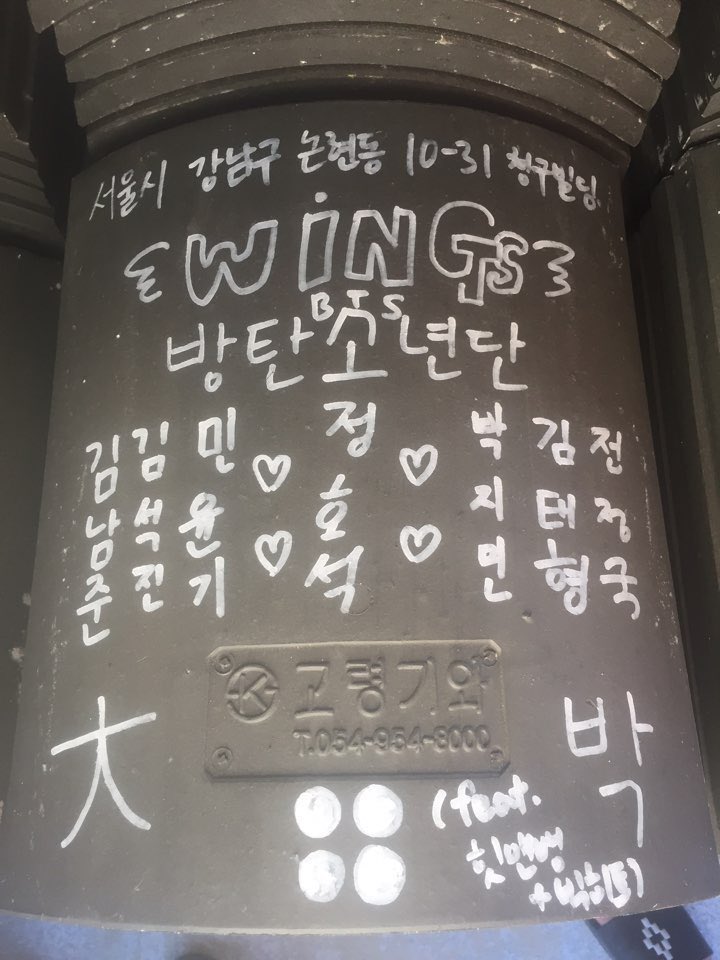 서울시 강남구 논현동 10-31 청구빌딩
WiNGS
BTS
방탄소년단
김남준
김석진
민윤기
♡ ♡
정호석
♡ ♡
박지민
김태형
전정국
고령기와
T.054-954-8000
大 박
(feat.
힛맨뱅
+빅히트)